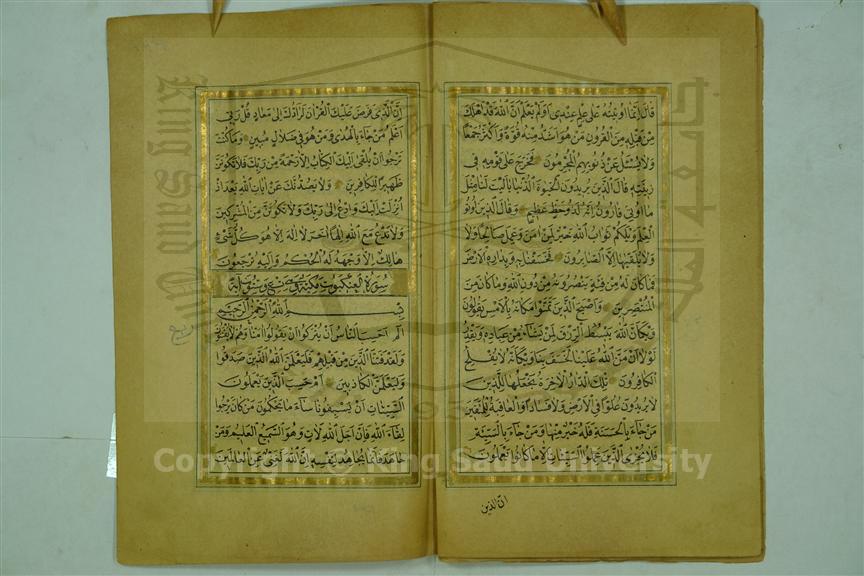 قال إنما أوتيته على علم عندي أولم يعلم أن الله قد أهلك
من قبله من القرون من هو أشد منه قوة وأكثر جمعا
ولا يسئل عن ذنوبهم المجرمون فخرج على قومه في
زينته قال الذين يريدون الحيوة الدنيا يا ليت لنا مثل
ما أوتي قارون إنه لذو حظ عظيم وقال الذين أوتوا
العلم ويلكم ثواب الله خير لمن آمن وعمل صالحا ولا
ولا يلقيها إلا الصابرون فخسفنا به وبداره الأرض
فما كان له من فئة ينصرونه من دون الله وما كان من
المنتصرين وأصبح الذين تمنوا مكانه بالأمس يقولون
ويكأن الله يبسط الرزق لمن يشاء من عباده ويقدر
لولا أن من الله علينا لخسف بنا ويكأنه لا يفلح
الكافرون تلك الدار الآخرة نجعلها للذين
لا يريدون علوا في الأرض ولا فسادا والعاقبة للمتقين
من جاء بالحسنة فله خير منها ومن جاء بالسيئة
فلا يجزى الذين عملوا السيئات إلا ما كانوا يعملون
ان الذين
إن الذي فرض عليك القرآن لرادك إلى معاد قل ربي
أعلم من جاء بالهدى ومن هو في ضلال مبين وما كنت
ترجوا أن يلقى إليك الكتاب إلا رحمة من ربك فلا تكونن
ظهيرا للكافرين ولا يصدنك عن آيات الله بعد إذ
أنزلت إليك وادع إلى ربك ولا تكونن من المشركين
ولا تدع مع الله إلها آخر لا إله إلا هو كل شيء
هالك إلا وجهه له الحكم وإليه ترجعون
سورة العنكبوت مكية وهي تسع وستون آية
بسم الله الرحمن الرحيم
الم أحسب الناس أن يتركوا أن يقولوا آمنا وهم لا يفتنون
ولقد فتنا الذين من قبلهم فليعلمن الله الذين صدقوا
وليعلمن الكاذبين أم حسب الذين يعملون
السيئات أن يسبقونا ساء ما يحكمون من كان يرجوا
لقاء الله فإن أجل الله لآت وهو السميع العليم ومن
جاهد فإنما يجاهد لنفسه إن الله لغني عن العالمين
Copyright © King Saud University
King Saud University